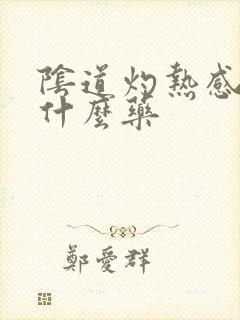 陰道灼熱感
什麼藥
鄭愛群